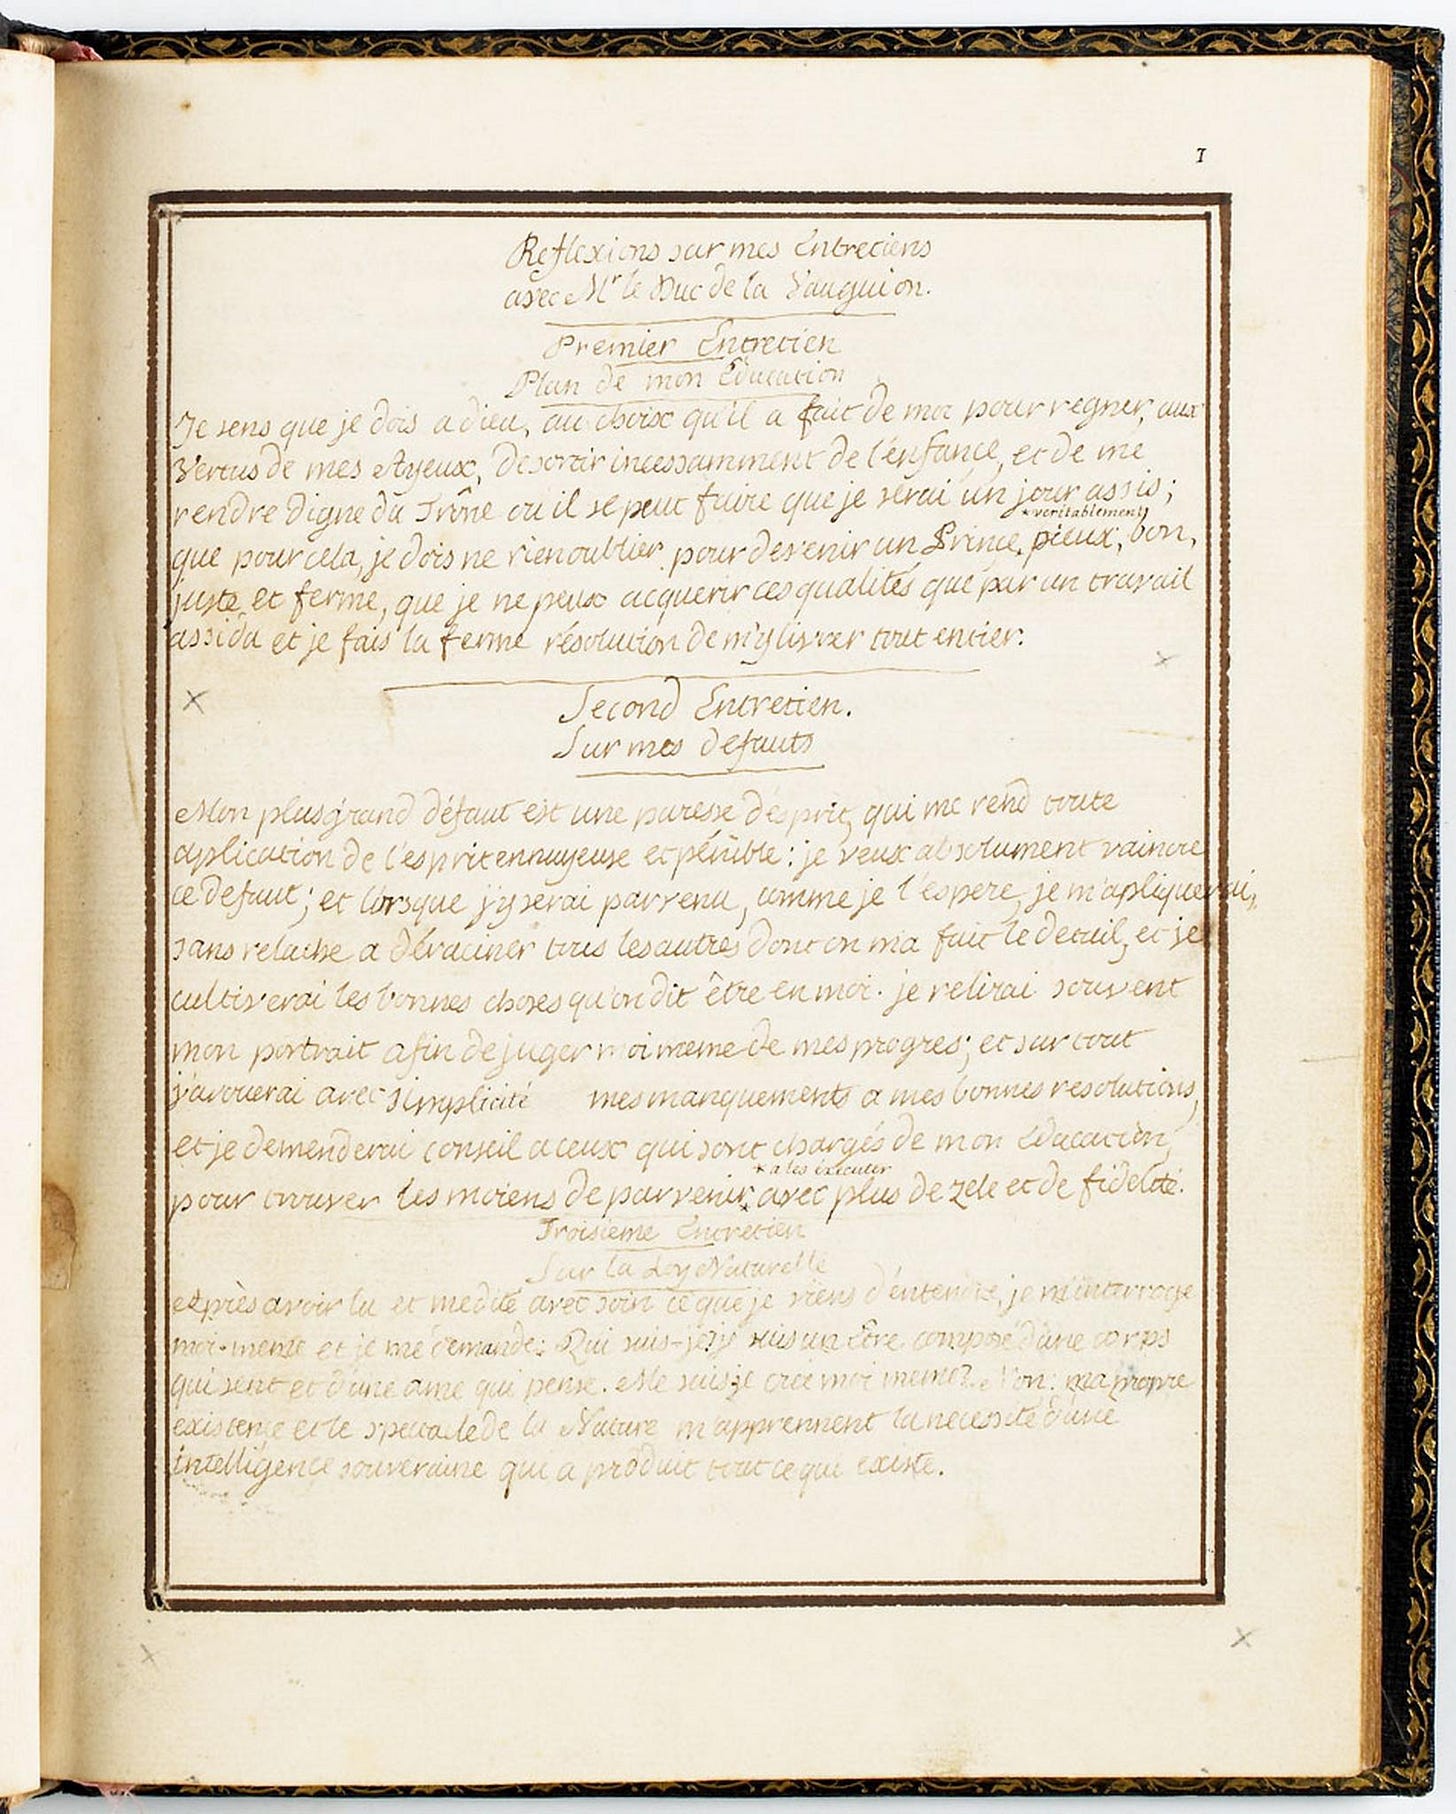 1
Reflexions sur mes Entretiens
avec Mr le Duc de la Vauguion.
Premier Entretien
Plan de mon Education
Je sens que je dois a dieu, au choix qu'il a fait de moi pour regner, aux
Vertus de mes Ayeux, de sortir incessamment de l'énfance, et de me
rendre digne du Trône ou il se peut faire que je serai un jour assis;
*veritablement
que pour cela, je dois ne rien oublier pour devenir un Prince* pieux, bon,
juste et ferme, que je ne peux acquerir ces qualités que par un travail
assidu et je fais la ferme résolution de m'y livrer tout entier.
Second Entretien.
Sur mes defauts
Mon plus grand défaut est une paresse d'esprit, qui me rend toute
aplication de l'esprit ennuyeuse et pénible: je veux absolument vaincre
ce defaut; et lorsque j'y serai parvenu, comme je l'espere, je m'apliquerai,
sans relache a déraciner tous les autres dont on m'a fait le detail, et je
cultiverai les bonnes choses qu'on dit être en moi. je relirai souvent
mon portrait afin de juger moi meme de mes progres; et sur tout
j'avouerai avec simplicité mes manquements a mes bonnes resolutions,
et je demenderai conseil a ceux qui sont chargés de mon Education,
*a les éxécuter
pour trouver les moiens de parvenir* avec plus de zele et de fidelité.
Troisieme Entretien
Sur la Loy Naturelle
Après avoir lu et medité avec soin ce que je viens d'entendre, je m'interroge
moi-meme et je me demande: Qui suis-je? je suis un Etre composé d'une corps
qui sent et d'une ame qui pense. Me suis je créé moi meme? Non: ma propre
existence et le spectacle de la Nature m'apprennent la necessité d'une
intelligence souveraine qui a produit tout ce qui existe.